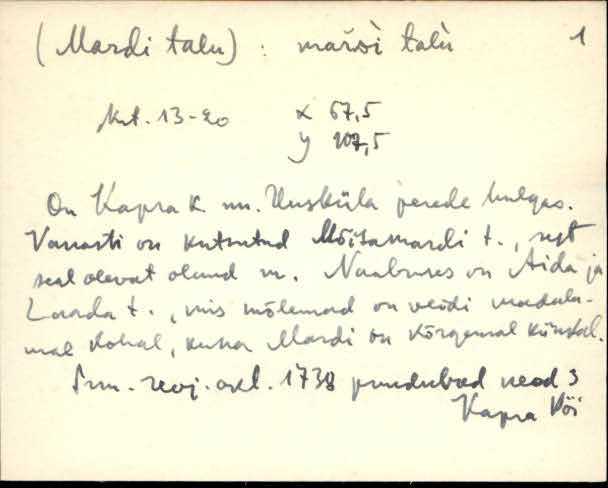 (Mardi talu) : marsi talu 1
Krt. 13-20 x 67,5
y 107,5
On Kapra k nn. Uusküla perede hulgas.
Vanasti on kutsutud Mõisamardi t., sest
seal olevat olnud m. Naabruses on Aida ja
Laarda t., mis mõlemad on veidi madala-
mal kohal, kuna Mardi on kõrgemal künkal.
1738 puuduvad need 3
Kapra Või